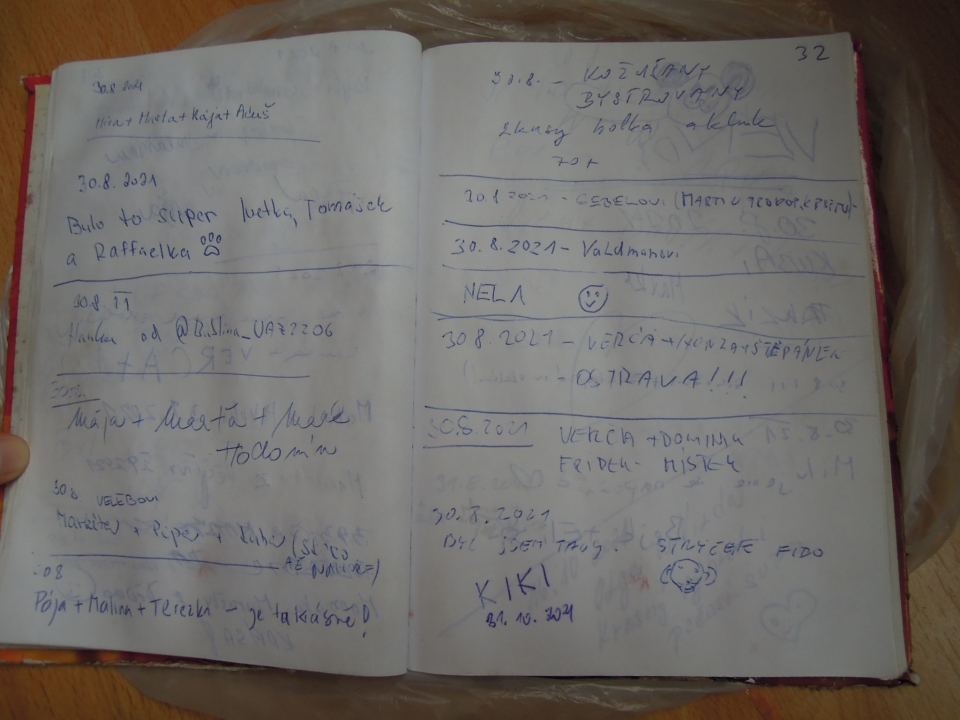 30.8. 2021
Míra + Marta + Kája + Aduš
30.8.2021
Bylo to super Luctka, Tomášek
a Raffaelka
30.8. 21
Hanka od
30.8.
Mája + Marťa + Marek
Hodonín
30.8. VELEBOVI
Markéta + Piper + Kuba
30.8
Pája + Malina + Terezka - je to krásné!
32
30.8. - KOŽUŠANY
BYSTROVANY
2 kusy holka a kluk
70+
30.8.2021 -
30.8.2021 - Valdmanovi
NELA
30.8.2021 - VERČA + HONZA + ŠTĚPÁNEK
OSTRAVA!!!
30.8.2021 VERČA + DOMINIK
FRÝDEK - MÍSTEK
30.8.2021
BYL JSEM TADY. STRÝČEK FIDO
KIKI
31.10.2021